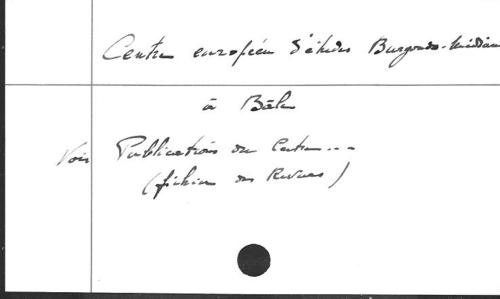 Centre européen d'études Burgondo-Médian
à Bâle
Voir Publications du Centre...
(fichier des Revues)